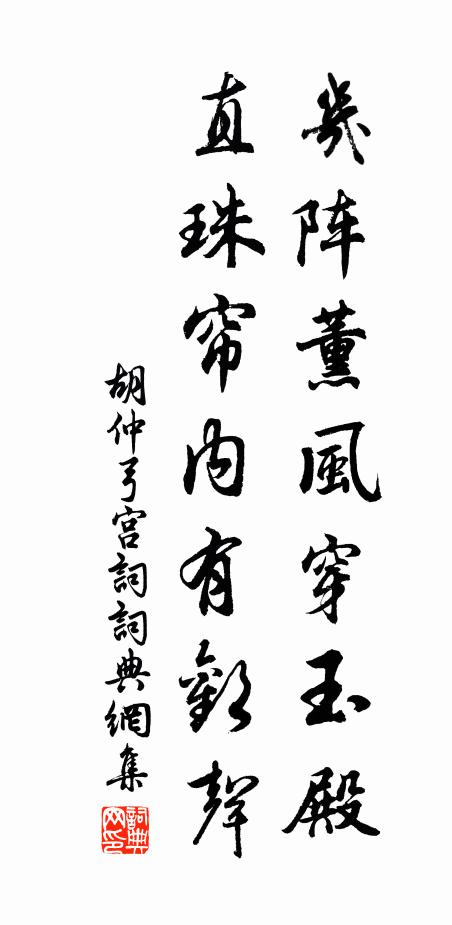 幾阵薰風穿玉殿
直珠帘内有歡聲
胡仲弓宫詞詞典網集
詞典网印